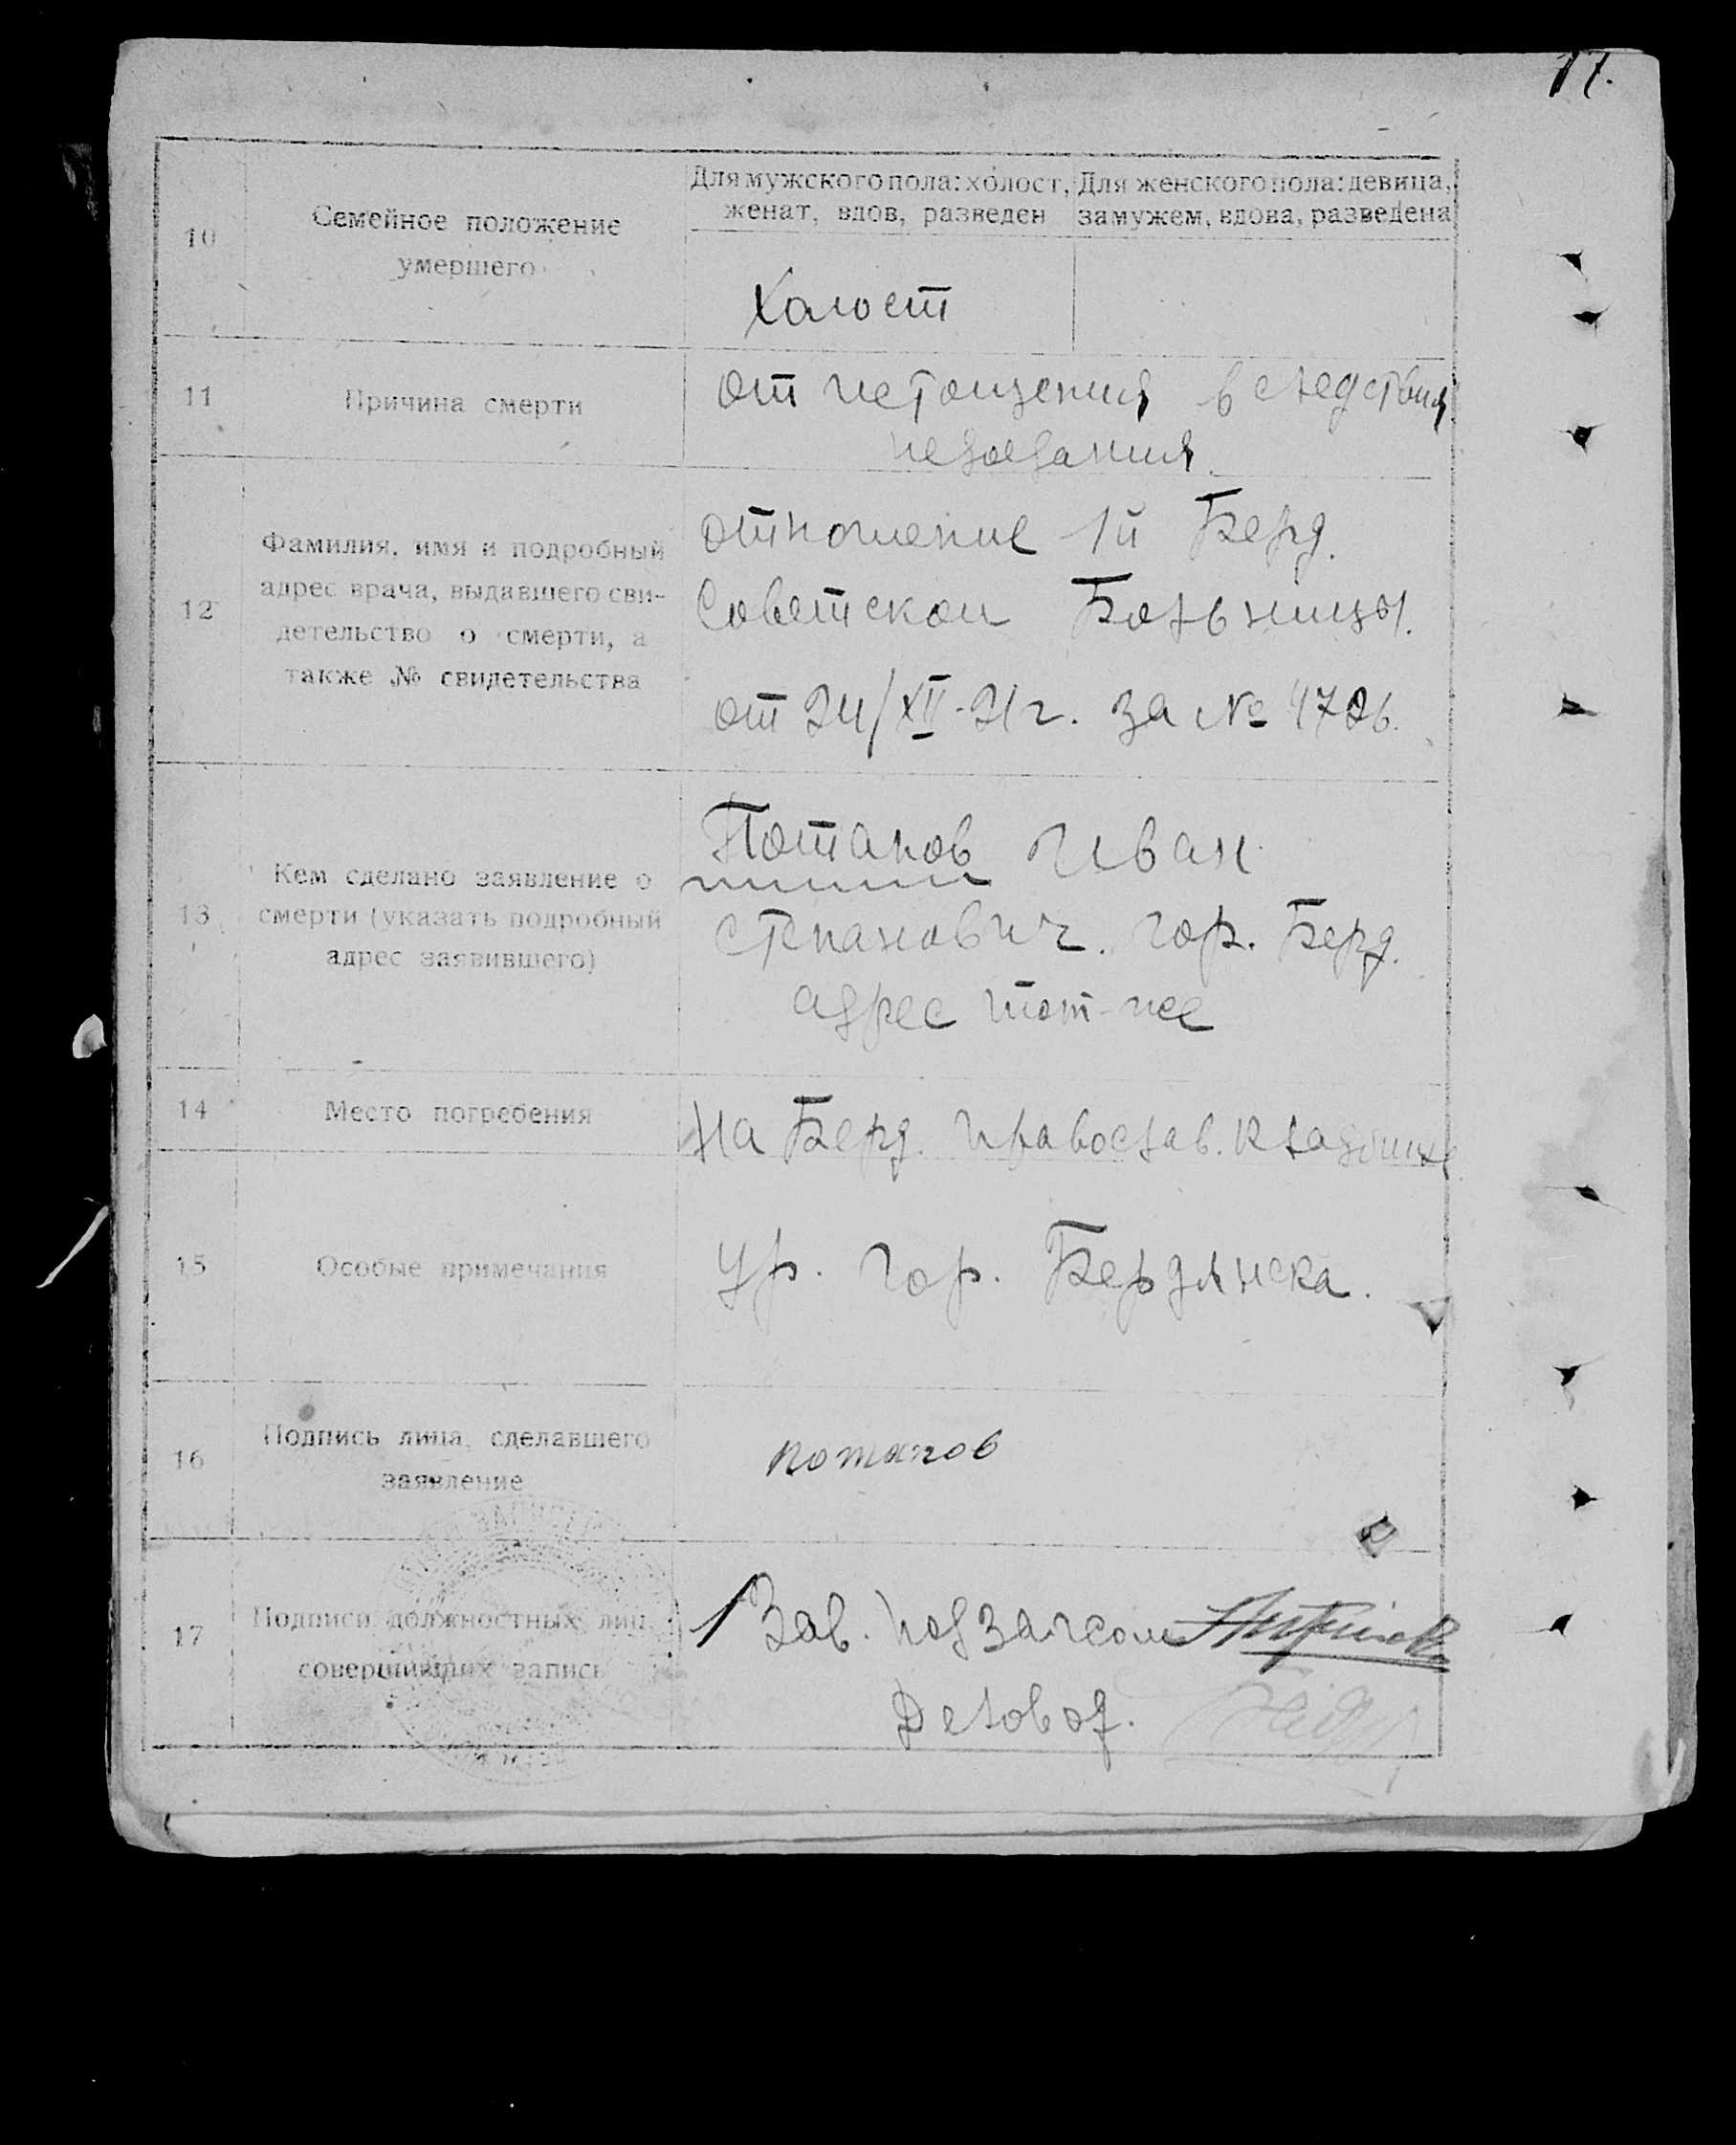 17.
Для мужского пола: холост,
женат, вдов, разведен
Для женского пола: девица,
замужем, вдова, разведена
10
Семейное положение
умершего
Холост
11
Причина смерти
От истощения в следствия
недоедания.
12
Фамилия, имя и подробный
адрес врача, выдавшего сви-
детельство о смерти, а
также № свидетельства
отношение 1й Берд.
Советской Больницы.
от 24/XII-21г. за № 4726.
13
Кем сделано заявление о
смерти (указать подробный
адрес заявившего)
Потапов Иван
Степанович. гор. Берд.
адрес тот-же
14
Место погребения
На Берд. Православ. Кладбище
15
Особые примечания
Ур. гор. Бердянска.
16
Подпись лица, сделавшего
заявление
потапов
17
Подписи должностных лиц,
совершивших запись
Зав. Подзагсом
Деловод.